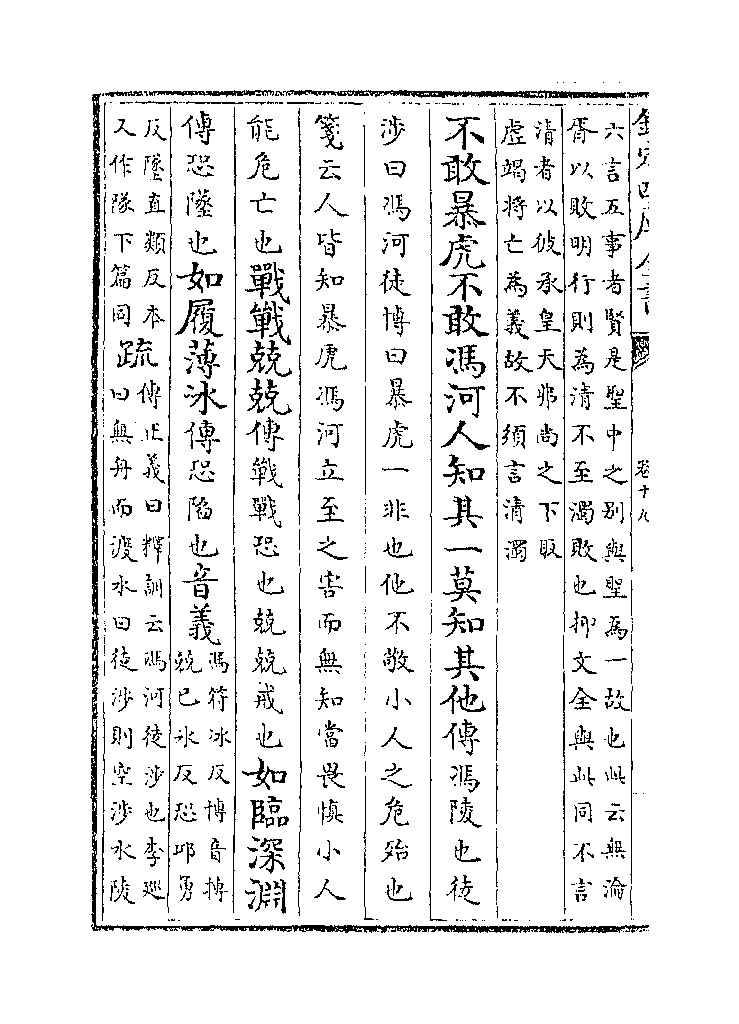 欽定四庫全書
卷十九
六言五事者賢是聖中之别與聖為一故也此云無淪
胥以敗明行則為清不至濁敗也抑文全與此同不言
清者以彼承皇天弗尚之下取
虛竭將亡為義故不須言清濁
不敢暴虎不敢馮河人知其一莫知其他傳馮陵也徒
涉曰馮河徒博曰暴虎一非也他不敬小人之危殆也
箋云人皆知暴虎馮河立至之害而無知當畏慎小人
能危亡也戰戰兢兢傳戰戰恐也兢兢戒也如臨深淵
傳恐墜也如履薄冰傳恐陷也音義
馮符冰反博音搏
兢已氷反恐邱勇
反墜直類反本
又作隊下篇同
疏
傳正義曰釋訓云馮河徒涉也李巡
曰無舟而渡水曰徒涉則空涉水陵